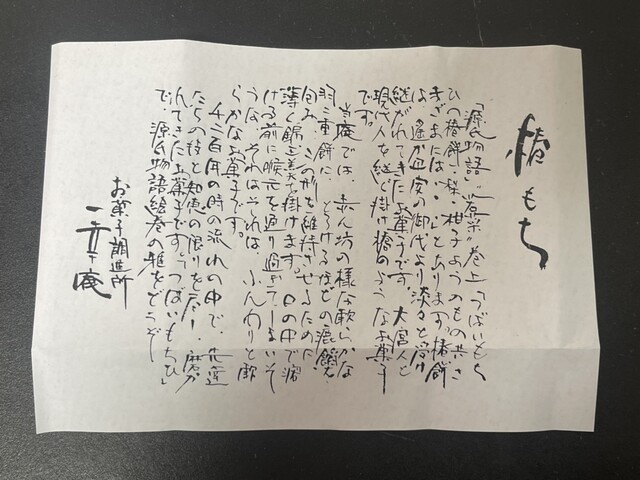 椿もち
「源氏物語」"若菜"巻上「つばいもち
ひ(椿餅)・梨・柑子ようのもの共、さま
ざまには・・」とあります。椿餅
は、遙か平安の御代より淡々と受け
継がれてきたお菓子です。大宮人と
現代人を継ぐ掛け橋のようなお菓子
です。
当庵では、赤ん坊の様な軟らかな
羽二重餅に、とろける
包み、この形を維持させるために
薄く錦玉羹を掛けます。口の中で溶
ける前に喉元を通り過ぎてしまいそ
うな、それはそれは、ふんわりと軟
らかなお菓子です。
千二百年の時の流れの中で、先達
たちの技と知恵の限りを尽し、磨か
れてきたお菓子です。「つばいもちひ」
で、源氏物語絵巻の雅をどうぞ―
お菓子調進所
一幸庵